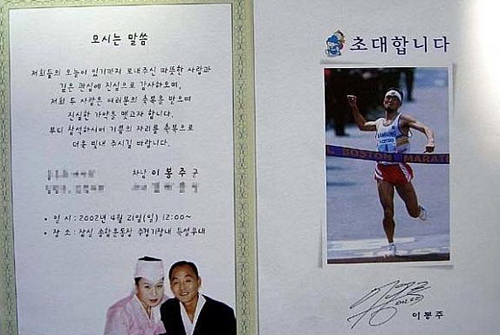 모시는 말씀
저희들의 오늘이 있기까지 보내주신 따뜻한 사랑과
깊은 관심에 진심으로 감사하오며,
저희 두 사람은 여러분의 축복을 받으며
진실한 가약을 맺고자 합니다.
부디 참석하시어 기쁨의 자리를 축복으로
더욱 빛내 주시길 바랍니다.
차남 이 봉 주 군
• 일 시 : 2002년 4월 21일(일) 12:00~
• 장 소 : 잠실 종합운동장 수영장내 특설무대
초대합니다
SAMSUNG
BOSTON MARATH
이봉주